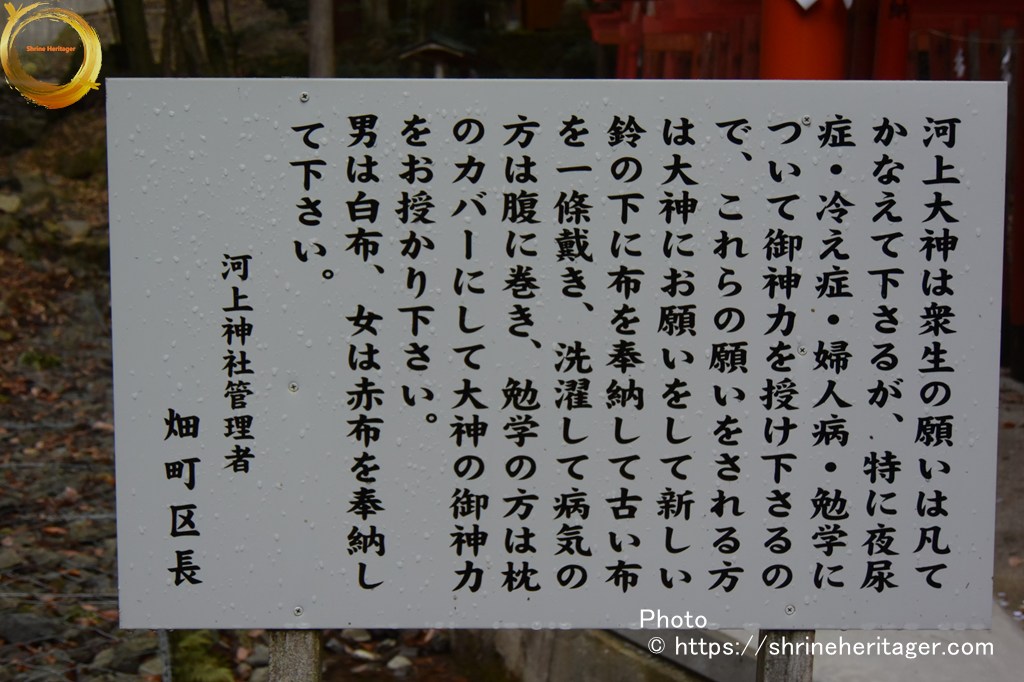 Shrine Heritager
河上大神は衆生の願いは凡て
かなえて下さるが、特に夜尿
症・冷え症・婦人病・勉学に
ついて御神力を授け下さるの
で、これらの願いをされる方
は大神にお願いをして新しい
鈴の下に布を奉納して古い布
を一條戴き、洗濯して病気の
方は腹に巻き、勉学の方は枕
のカバーにして大神の御神力
をお授かり下さい。
男は白布、女は赤布を奉納し
て下さい。
河上神社管理者
畑町区長
Photo
© https://shrineheritager.com